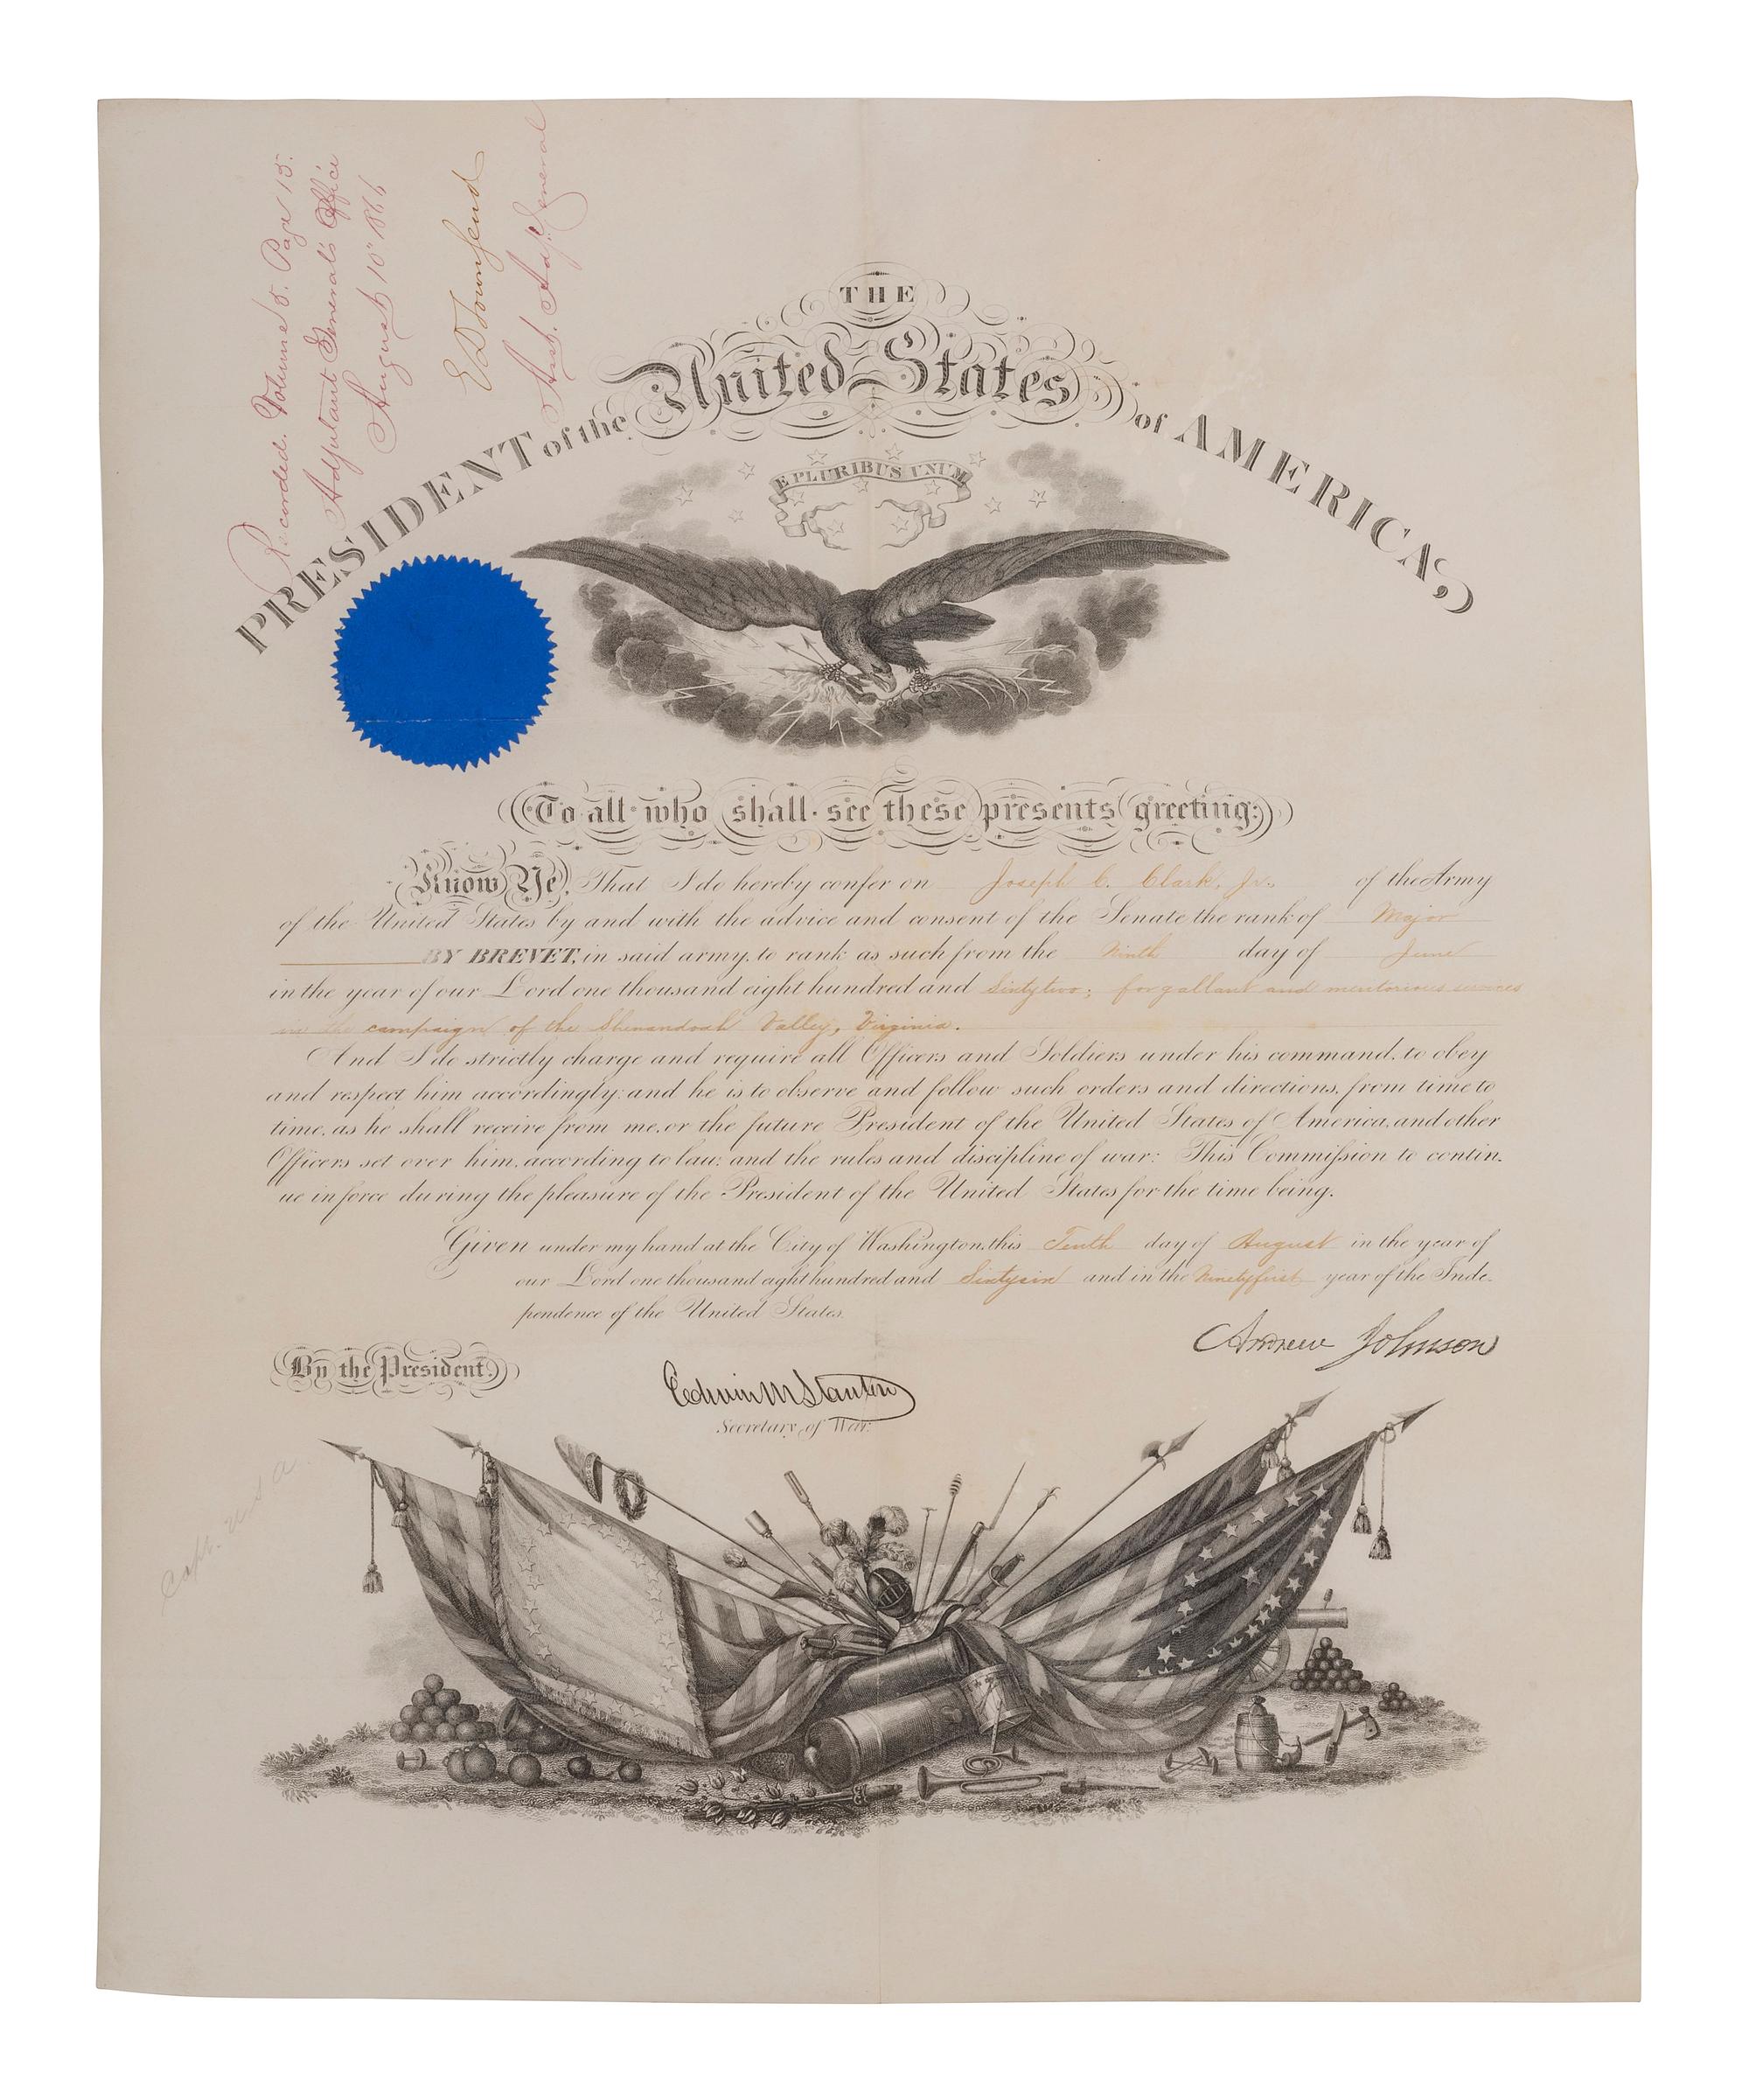 Recorded. Volume 8. Page 15.
Adjutant General's Office
August 10" 1866
E D Townsend
Asst. Adjt. General
THE
PRESIDENT of the United States of AMERICA,
E PLURIBUS UNUM
To all who shall see these presents greeting:
Know Ye, That I do hereby confer on Joseph C. Clark, Jr. of the Army
of the United States by and with the advice and consent of the Senate the rank of Major
BY BREVET, in said army, to rank as such from the Ninth day of June
in the year of our Lord one thousand eight hundred and Sixtytwo; for gallant and meritorious services
in the campaign of the Shenandoah Valley, Virginia.
And I do strictly charge and require all Officers and Soldiers under his command, to obey
and respect him accordingly: and he is to observe and follow such orders and directions, from time to
time, as he shall receive from me, or the future President of the United States of America, and other
Officers set over him, according to law: and the rules and discipline of war: This Commission to contin-
ue in force during the pleasure of the President of the United States for the time being.
Given under my hand at the City of Washington, this Tenth day of August in the year of
our Lord one thousand eight hundred and Sixtysix and in the Ninetyfirst year of the Inde-
pendence of the United States.
Andrew Johnson
By the President,
Edwin M Stanton
Secretary of War.
Capt. U S A